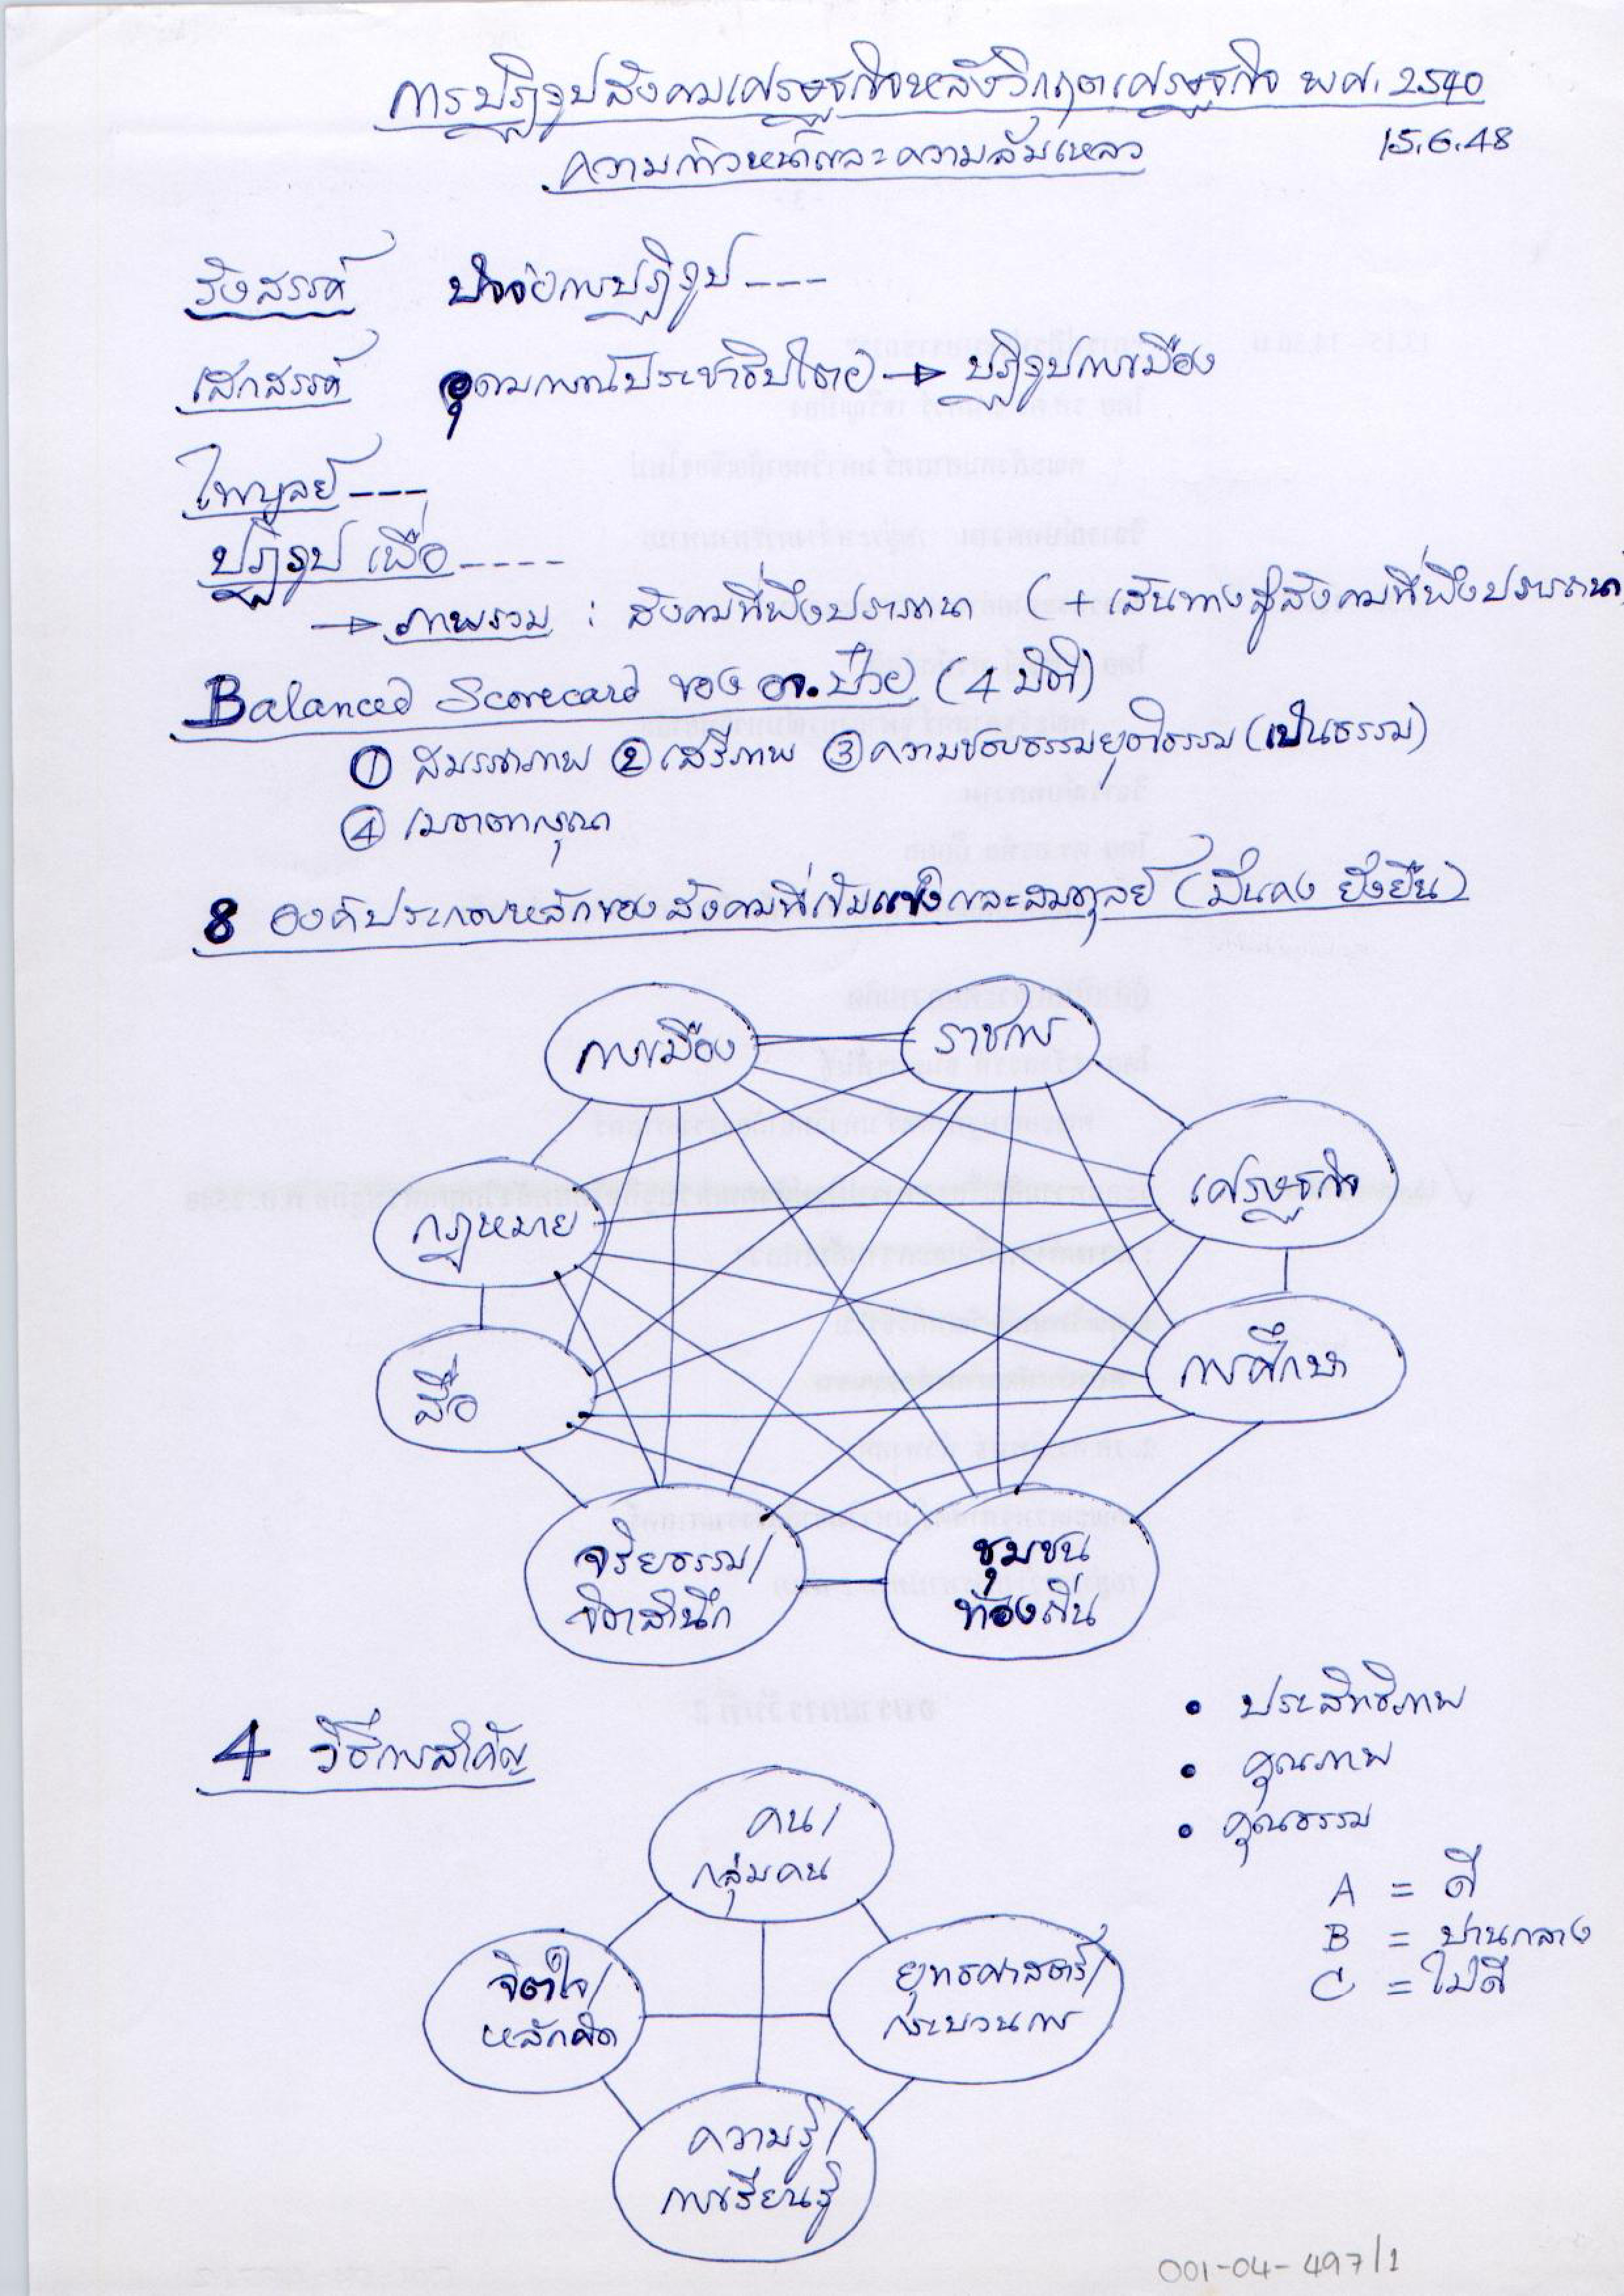 การปฏิรูปสังคมเศรษฐกิจหลังวิกฤตเศรษฐกิจ พศ. 2540
ความก้าวหน้าและความล้มเหลว
15.6.48
รังสรรค์ ปัจจัยการปฏิรูป ---
เสกสรรค์ อุดมการณ์ประชาธิปไตย → ปฏิรูปการเมือง
ไพบูลย์ ---
ปฏิรูป เพื่อ ----
→ ภาพรวม : สังคมที่พึงปรารถนา (+ เส้นทางสู่สังคมที่พึงปรารถนา)
Balanced Scorecard ของ อจ.ป๋วย (4 มิติ)
① สมรรถภาพ ② เสรีภาพ ③ ความชอบธรรมยุติธรรม (เป็นธรรม)
④ เมตตากรุณา
8 องค์ประกอบหลักของสังคมที่เข้มแข็งและสมดุลย์ (มั่นคง ยั่งยืน)
การเมือง
ราชการ
เศรษฐกิจ
กฎหมาย
การศึกษา
สื่อ
จริยธรรม/
จิตสำนึก
ชุมชน
ท้องถิ่น
4 วิธีการสำคัญ
• ประสิทธิภาพ
• คุณภาพ
• คุณธรรม
A = ดี
B = ปานกลาง
C = ไม่ดี
คน/
กลุ่มคน
จิตใจ/
หลักคิด
ยุทธศาสตร์/
กระบวนการ
ความรู้/
การเรียนรู้
001-04-497/1